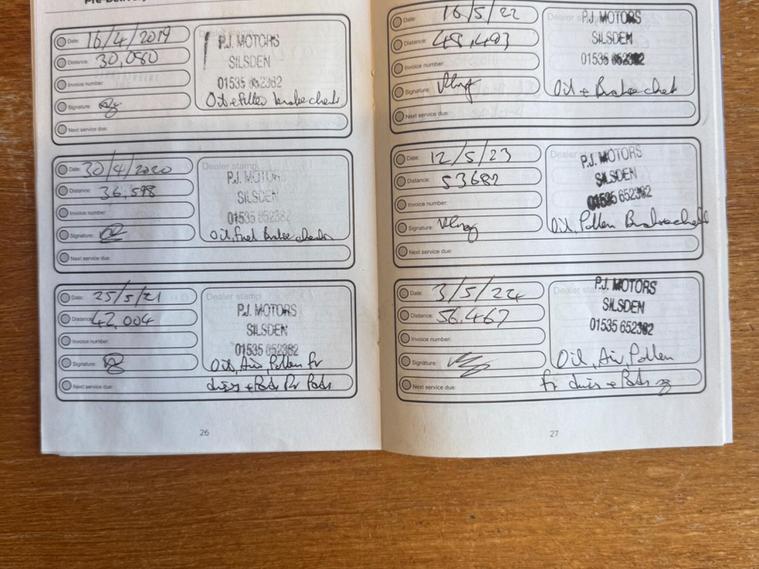 Date: 16/4/2019
Distance: 30,080
Invoice number:
Signature:
Next service due:
P.J. MOTORS
SILSDEN
01535 652382
Oil + Pollen brake check
Date: 30/4/2020
Distance: 36,598
Invoice number:
Signature:
Next service due:
Dealer stamp
P.J. MOTORS
SILSDEN
01535 652382
Oil, Fuel Brake checks
Date: 25/5/21
Distance: 42,004
Invoice number:
Signature:
Next service due:
Dealer stamp
P.J. MOTORS
SILSDEN
01535 652382
Oil, Air, Pollen Fr
discs + Pads Rr Pads
26
Date: 16/5/22
Distance: 48,493
Invoice number:
Signature:
Next service due:
P.J. MOTORS
SILSDEN
01535 652382
Oil + Brake check
Date: 12/5/23
Distance: 53682
Invoice number:
Signature:
Next service due:
P.J. MOTORS
SILSDEN
01535 652382
Oil, Pollen Brake check
Date: 3/5/24
Distance: 56,467
Invoice number:
Signature:
Next service due:
P.J. MOTORS
SILSDEN
01535 652382
Oil, Air, Pollen
fr discs + Pads
27